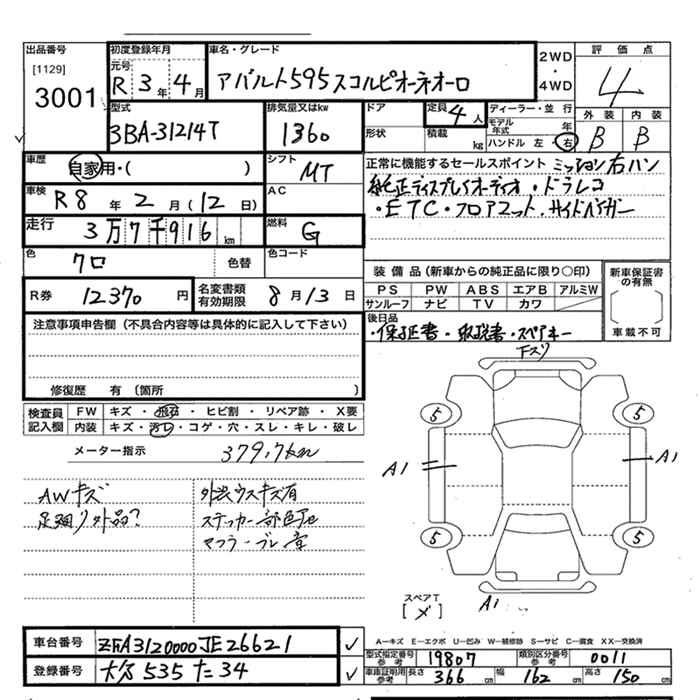 出品番号 初度登録年月 車名・グレード 2WD・4WD 評価点
[1129] 元号
3001 R 3年 4月 アバルト595スコルピオーネオーロ 4
型式 排気量又はkw ドア 定員 4人 ディーラー・並行 外装 内装
3BA-31214T 1360 形状 積載 kg モデル年式 年 B B
ハンドル 左 右
車歴 自家用・( ) シフト MT 正常に機能するセールスポイント ミッション右ハン
車検 R8年 2月(12日) AC 純正ディスプレイオーディオ・ドラレコ
走行 3万7千916km 燃料 G ・ETC・フロアマット.サイドバイザー
色 クロ 色替 色コード
装備品(新車からの純正品に限り○印) 新車保証書の有無
R券 12370円 名変書類有効期限 8月13日 PS PW ABS エアB アルミW
サンルーフ ナビ TV カワ
注意事項申告欄(不具合内容等は具体的に記入して下さい) 後日品 車載不可
・保証書・取説書・スペアキー
下スリ
修復歴 有(箇所 )
検査員記入欄 FW キズ・飛石・ヒビ割・リペア跡・X要
内装 キズ・汚れ・コゲ・穴・スレ・キレ・破レ
メーター指示 379,7km
5 5
A1 A1
AWキズ 外装ウスキズ有
足廻り外品? ステッカー部色アセ
5 5
スペアT
[メ] A1
車台番号 ZFA3120000JE26621 A―キズ E―エクボ U―凹み W―補修跡 S―サビ C―腐食 XX―交換済
型式指定番号 参考 19807 類別区分番号 参考 0011
登録番号 535 た 34 車庫証明用 参考 長さ 366cm 幅 162cm 高さ 150cm